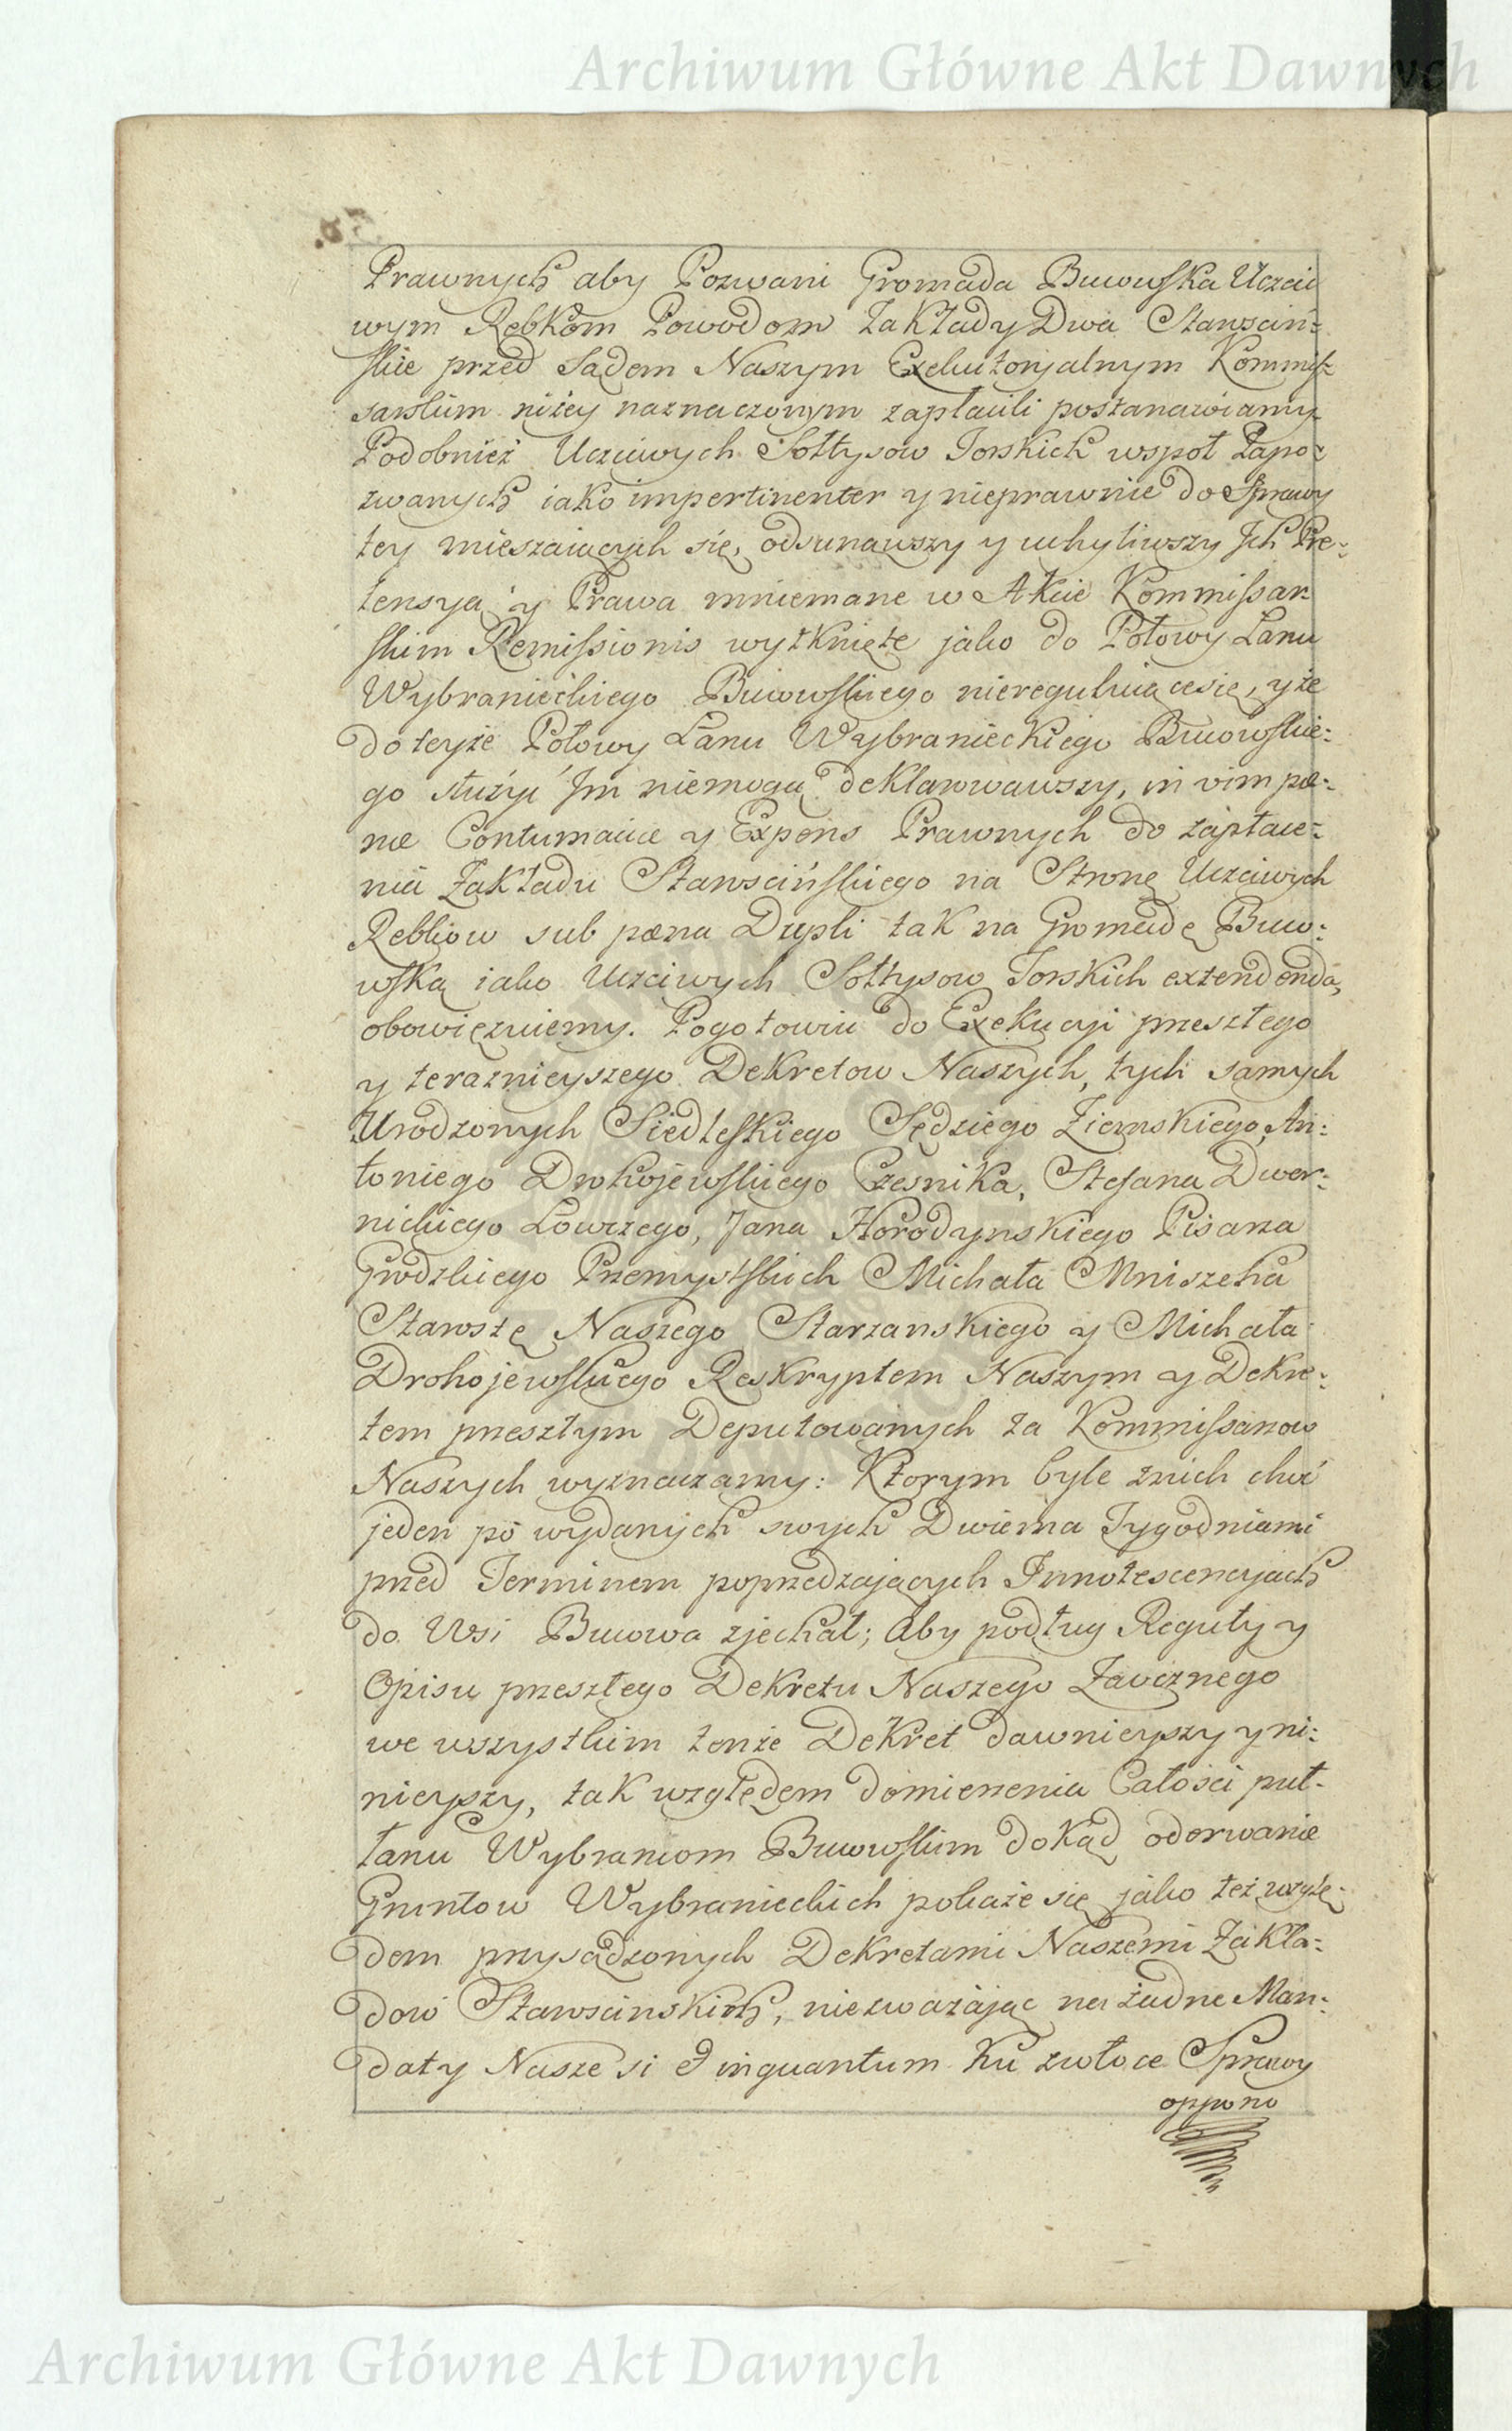 Archiwum Główne Akt Dawnych
Prawnych aby Pozwani Gromada Buwowska Uczci
wym Rębkom Powodom Zakłady Dwa Starościń=
skie przed Sądem Naszym Exekutoryalnym Kommis=
sarskim niżey naznaczonym zapłacili postanawiamy
Podobnież Uczciwych Sołtysow Torskich wspoł Zapo=
zwanych iako impertinenter y nieprawnie do Sprawy
tey mieszaiących się, odsunąwszy y uchyliwszy Jch Pre=
tensyą y Prawa mniemane w Akcie Kommissar
skim Remissionis wytknięte jako do Połowy Łanu
Wybranieckiego Buwowskiego nieregulującesię, y że
do teyże Połowy Łanu Wybranieckiego Buwowskie=
go służyć Jm niemogą deklarowawszy, in vim pœ=
næ Contumaciæ y Expens Prawnych do zapłace=
nia Zakładu Starościńskiego na Stronę Uczciwych
Rębkow sub pœna Dupli tak na Gromadę Buw=
wską iako Uczciwych Sołtysow Torskich extendenda,
obowięzuiemy. Pogotowiu do Exekucyi przeszłego
y teraznieyszego Dekretow Naszych, tych samych
Urodzonych Siedleskiego Sędziego Ziemskiego, An=
toniego Drohojewskiego Cześnika, Stefana Dwer=
nickiego Łowczego, Jana Horodynskiego Pisarza
Grodzkiego Przemyslskich Michała Mniszcha
Starostę Naszego Starzanskiego y Michała
Drohojewskiego Reskryptem Naszym y Dekre=
tem przeszłym Deputowanych za Kommissarzow
Naszych wyznaczamy: Ktorym byle znich choć
jeden po wydanych swych Dwiema Tygodniami
przed Terminem poprzedzających Innotescencyach
do Wsi Buwowa zjechał; Aby podług Reguły y
Opisu przeszłego Dekretu Naszego Zaocznego
we wszystkim tenże Dekret dawnieyszy y ni=
nieyszy, tak względem domierzenia Całości puł-
łanu Wybrancom Buwowskim dokąd oderwanie
Gruntow Wybranieckich pokaże się jako też wzglę=
dem przysądzonych Dekretami Naszemi Zakła=
dow Starościnskich, niezważając na żadne Man=
daty Nasze si & inquantum ku zwłoce Sprawy
oppono
Archiwum Główne Akt Dawnych